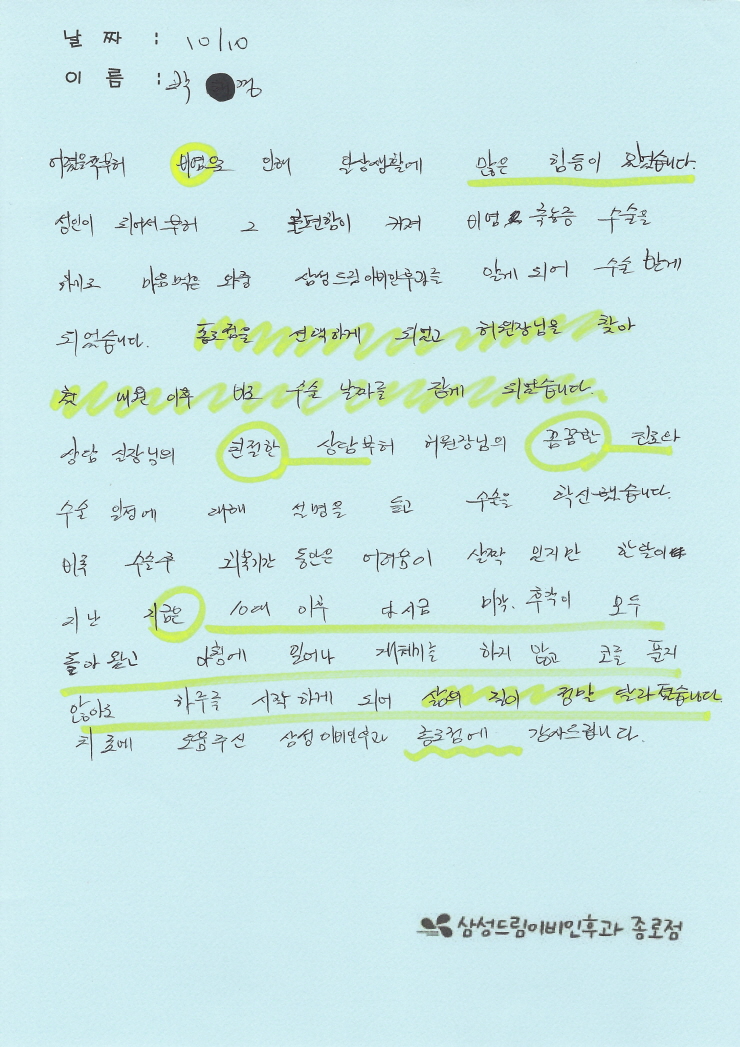 날 짜 : 10/10
이 름 : 박 경
어렸을쩍부터 비염으로 인해 일상생활에 많은 힘듬이 있었습니다.
성인이 되어서부터 그 불편함이 커져 비염, 축농증 수술을
하기로 마음먹은 와중 삼성드림이비인후과를 알게 되어 수술 받게
되었습니다. 종로점을 선택하게 되었고 허원장님을 찾아
첫 내원 이후 바로 수술 날짜를 잡게 되었습니다.
상담 실장님의 친절한 상담부터 허원장님의 꼼꼼한 진료와
수술 일정에 대해 설명을 듣고 수술을 확신했습니다.
비록 수술후 회복기간 동안은 어려움이 살짝 있지만 한달이
지난 지금은 10대 이후 다시금 미각, 후각이 모두
돌아 왔고 아침에 일어나 재채기를 하지 않고 코를 풀지
않아도 하루를 시작하게 되어 삶의 질이 정말 달라졌습니다.
치료에 도움주신 삼성이비인후과 종로점에 감사드립니다.
삼성드림이비인후과 종로점